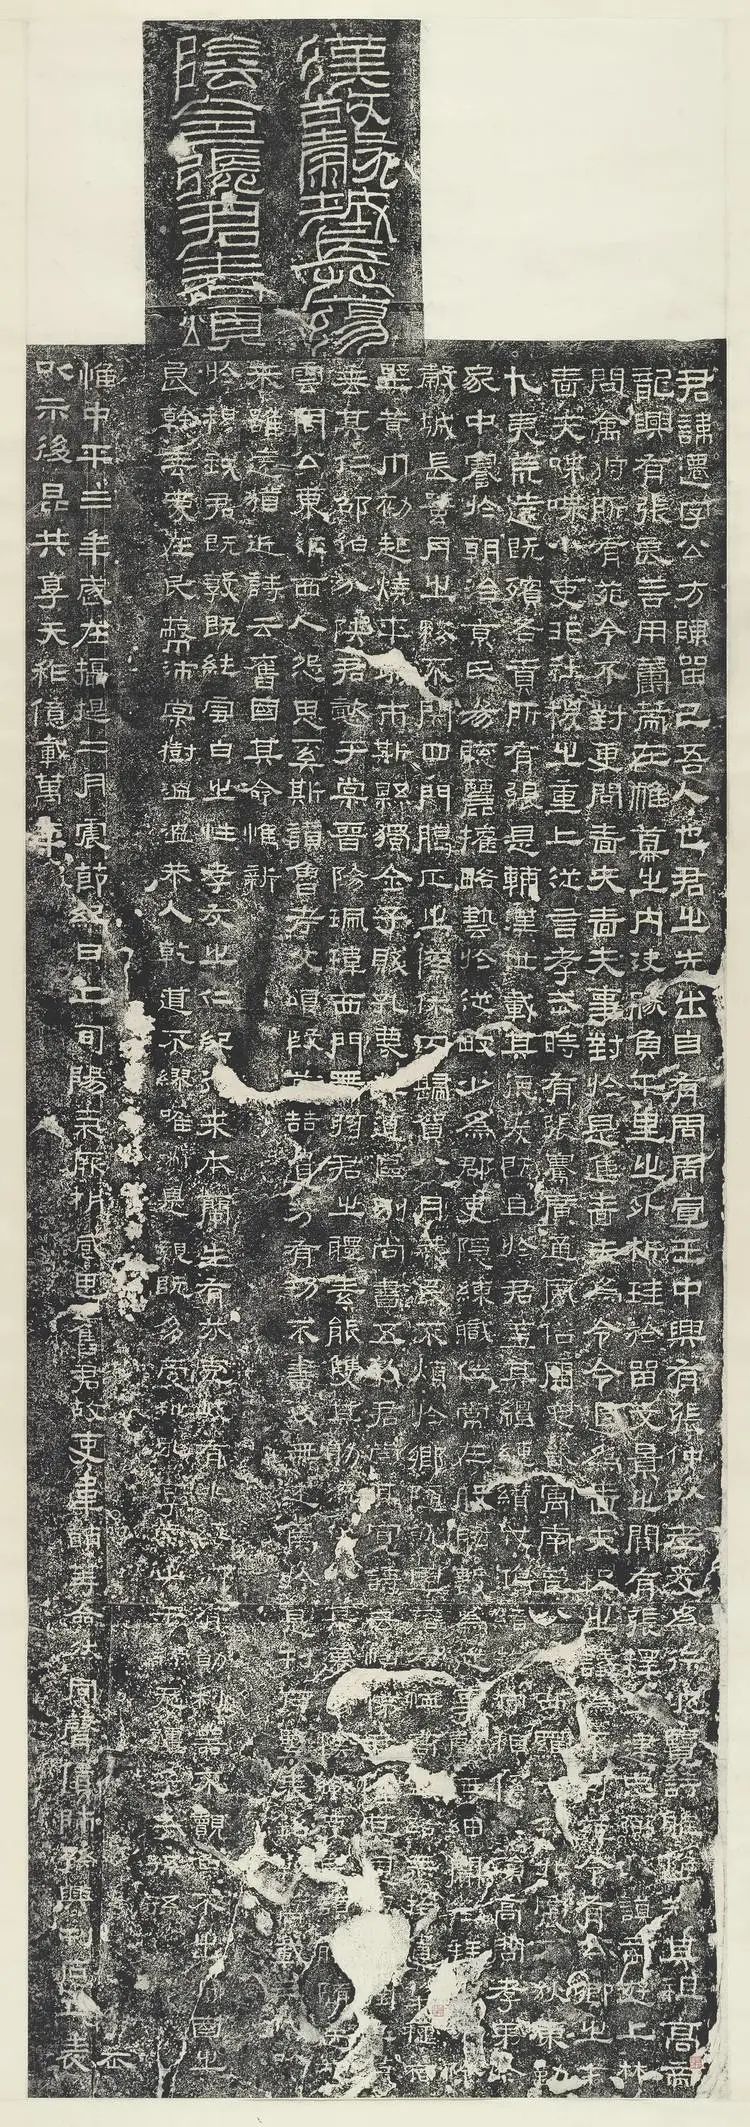 漢故穀城長蕩
陰令張君表頌
君諱遷字公方陳留己吾人也君之先出自有周周宣王中興有張仲以孝友為行披覽詩雅煥知其祖高帝
龍興有張良善用籌策在帷幕之內決勝負千里之外析珪於留文景之間有張釋之建忠弼之謨帝遊上林
問禽狩所有苑令不對更問嗇夫嗇夫事對於是進嗇夫為令令退為嗇夫釋之議為不可苑令有公卿之才
嗇夫喋喋小吏非社稷之重上從言孝武時有張騫廣通風俗開定畿寓南苞八蠻西羈六戎北震五狄東勤
九夷荒遠既殯各貢所有張是輔漢世載其德爰既且於君蓋其繵縺纘戎鴻緒牧守相係不殞高問孝弟於
家中謇於朝治京氏易聰麗權略藝於從畋少為郡吏隱練職位常在股肱數為從事聲無細聞徵拜郎中除
穀城長蠶月之務不閉四門臘正之傣休囚歸賀八月筭民不煩於鄉隨就虛落存恤高年路無拾遺犁種宿
野黃巾初起燒平城市斯縣獨全子賤孔蔑其道區別尚書五教君崇其寬詩云愷悌君隆其恩東里潤色君
垂其仁邵伯分陝君懿于棠晉陽珮瑋西門帶弦君之體素能雙其勛流化八基遷蕩陰令吏民頡頏隨送如
雲周公東征西人怨思奚斯讚魯考父頌殷前喆遺芳有功不書後無述焉於是刊石豎表銘勒萬載三代以
來雖遠猶近詩云舊國其命惟新
於穆我君既敦既純雪白之性孝友之仁紀行來本蘭生有芬克岐有兆綏御有勛利器不覿魚不出淵國之
良幹垂愛在民蔽沛棠樹溫溫恭人乾道不繆唯淑是親既多受祉永享南山干祿無疆子子孫孫
惟中平三年歲在攝提二月震節紀日上旬陽氣厥析感思舊君故吏韋萌等僉然同聲賃師孫興刊石立表
以示後昆共享天祚億載萬年